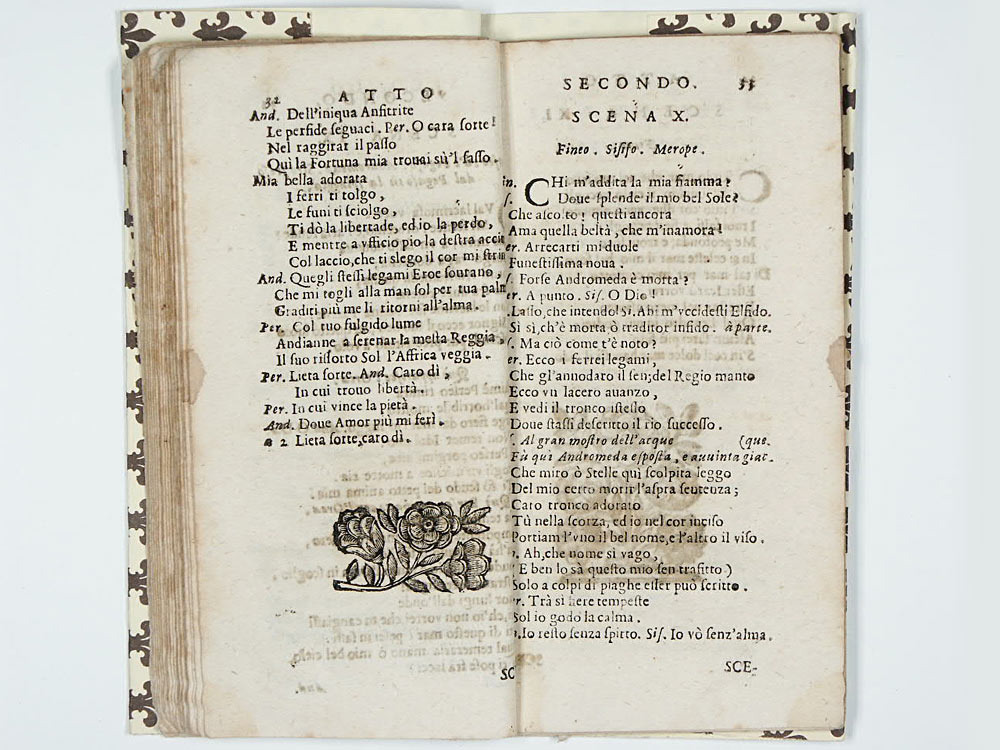 32 ATTO
And. Dell'iniqua Anfitrite
Le perfide seguaci. Per. O cara sorte!
Nel raggirar il passo
Quì la Fortuna mia trouai sù'l sasso.
Mia bella adorata
I ferri ti tolgo,
Le funi ti sciolgo,
Ti dò la libertade, ed io la perdo,
E mentre a vfficio pio la destra
Col laccio, che ti slego il cor mi
And. Quegli stessi legami Eroe sourano,
Che mi togli alla man sol per tua
Graditi più me li ritorni all'alma.
Per. Col tuo fulgido lume
Andianne a serenar la mesta Reggia,
Il suo risorto Sol l'Affrica veggia.
Per. Lieta sorte. And. Caro dì,
In cui trouo libertà.
Per. In cui vince la pietà.
And. Doue Amor più mi ferì.
a 2 Lieta sorte, caro dì.
SC
SECONDO. 33
SCENA X.
Fineo. Sisifo. Merope.
in. CHi m'addita la mia fiamma?
Doue splende il mio bel Sole?
Che ascolto! questi ancora
Ama quella beltà, che m'inamora!
er. Arrecarti mi duole
Funestissima noua.
Forse Andromeda è morta?
er. A punto. Sis. O Dio!
Lasso, che intendo! Si. Ahi m'vccidesti Elsido.
Si sì, ch'è morta ò traditor infido. à parte.
Ma ciò come t'è noto?
er. Ecco i ferrei legami,
Che gl'annodaro il sen; del Regio manto
Ecco vn lacero auanzo,
E vedi il tronco istesso
Doue stassi descritto il rio successo.
Al gran mostro dell'acque (que.
Fù quì Andromeda esposta, e auuinta giac.
Che miro ò Stelle quì scolpita leggo
Del mio certo morir l'aspra sentenza;
Caro tronco adorato
Tù nella scorza, ed io nel cor inciso
Portiam l'vno il bel nome, e l'altro il viso.
Ah, che nome sì vago,
E ben lo sà questo mio sen trafitto)
Solo a colpi di piaghe esser può scritto.
er. Trà sì fiere tempeste
Sol io godo la calma.
Io resto senza spirto. Sis. Io vò senz'alma.
SCE-